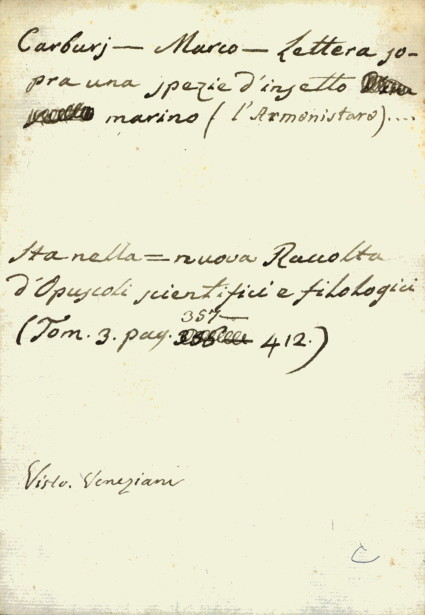 Carburj — Marco — Lettera so-
pra una spezie d'insetto
marino (l'Armonistaro)....
Sta nella = nuova Raccolta
d'Opuscoli scientifici e filologici
357 —
(Tom. 3. pag. 412.)
Visto. Veneziani
C